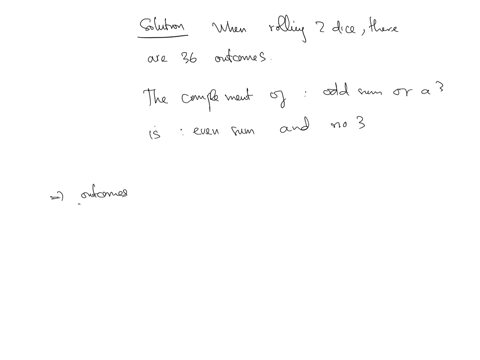 Solution When rolling 2 dice, there
are 36 outcomes.
The complement of : odd sum or a 3
is : even sum and no 3
=> outcomes